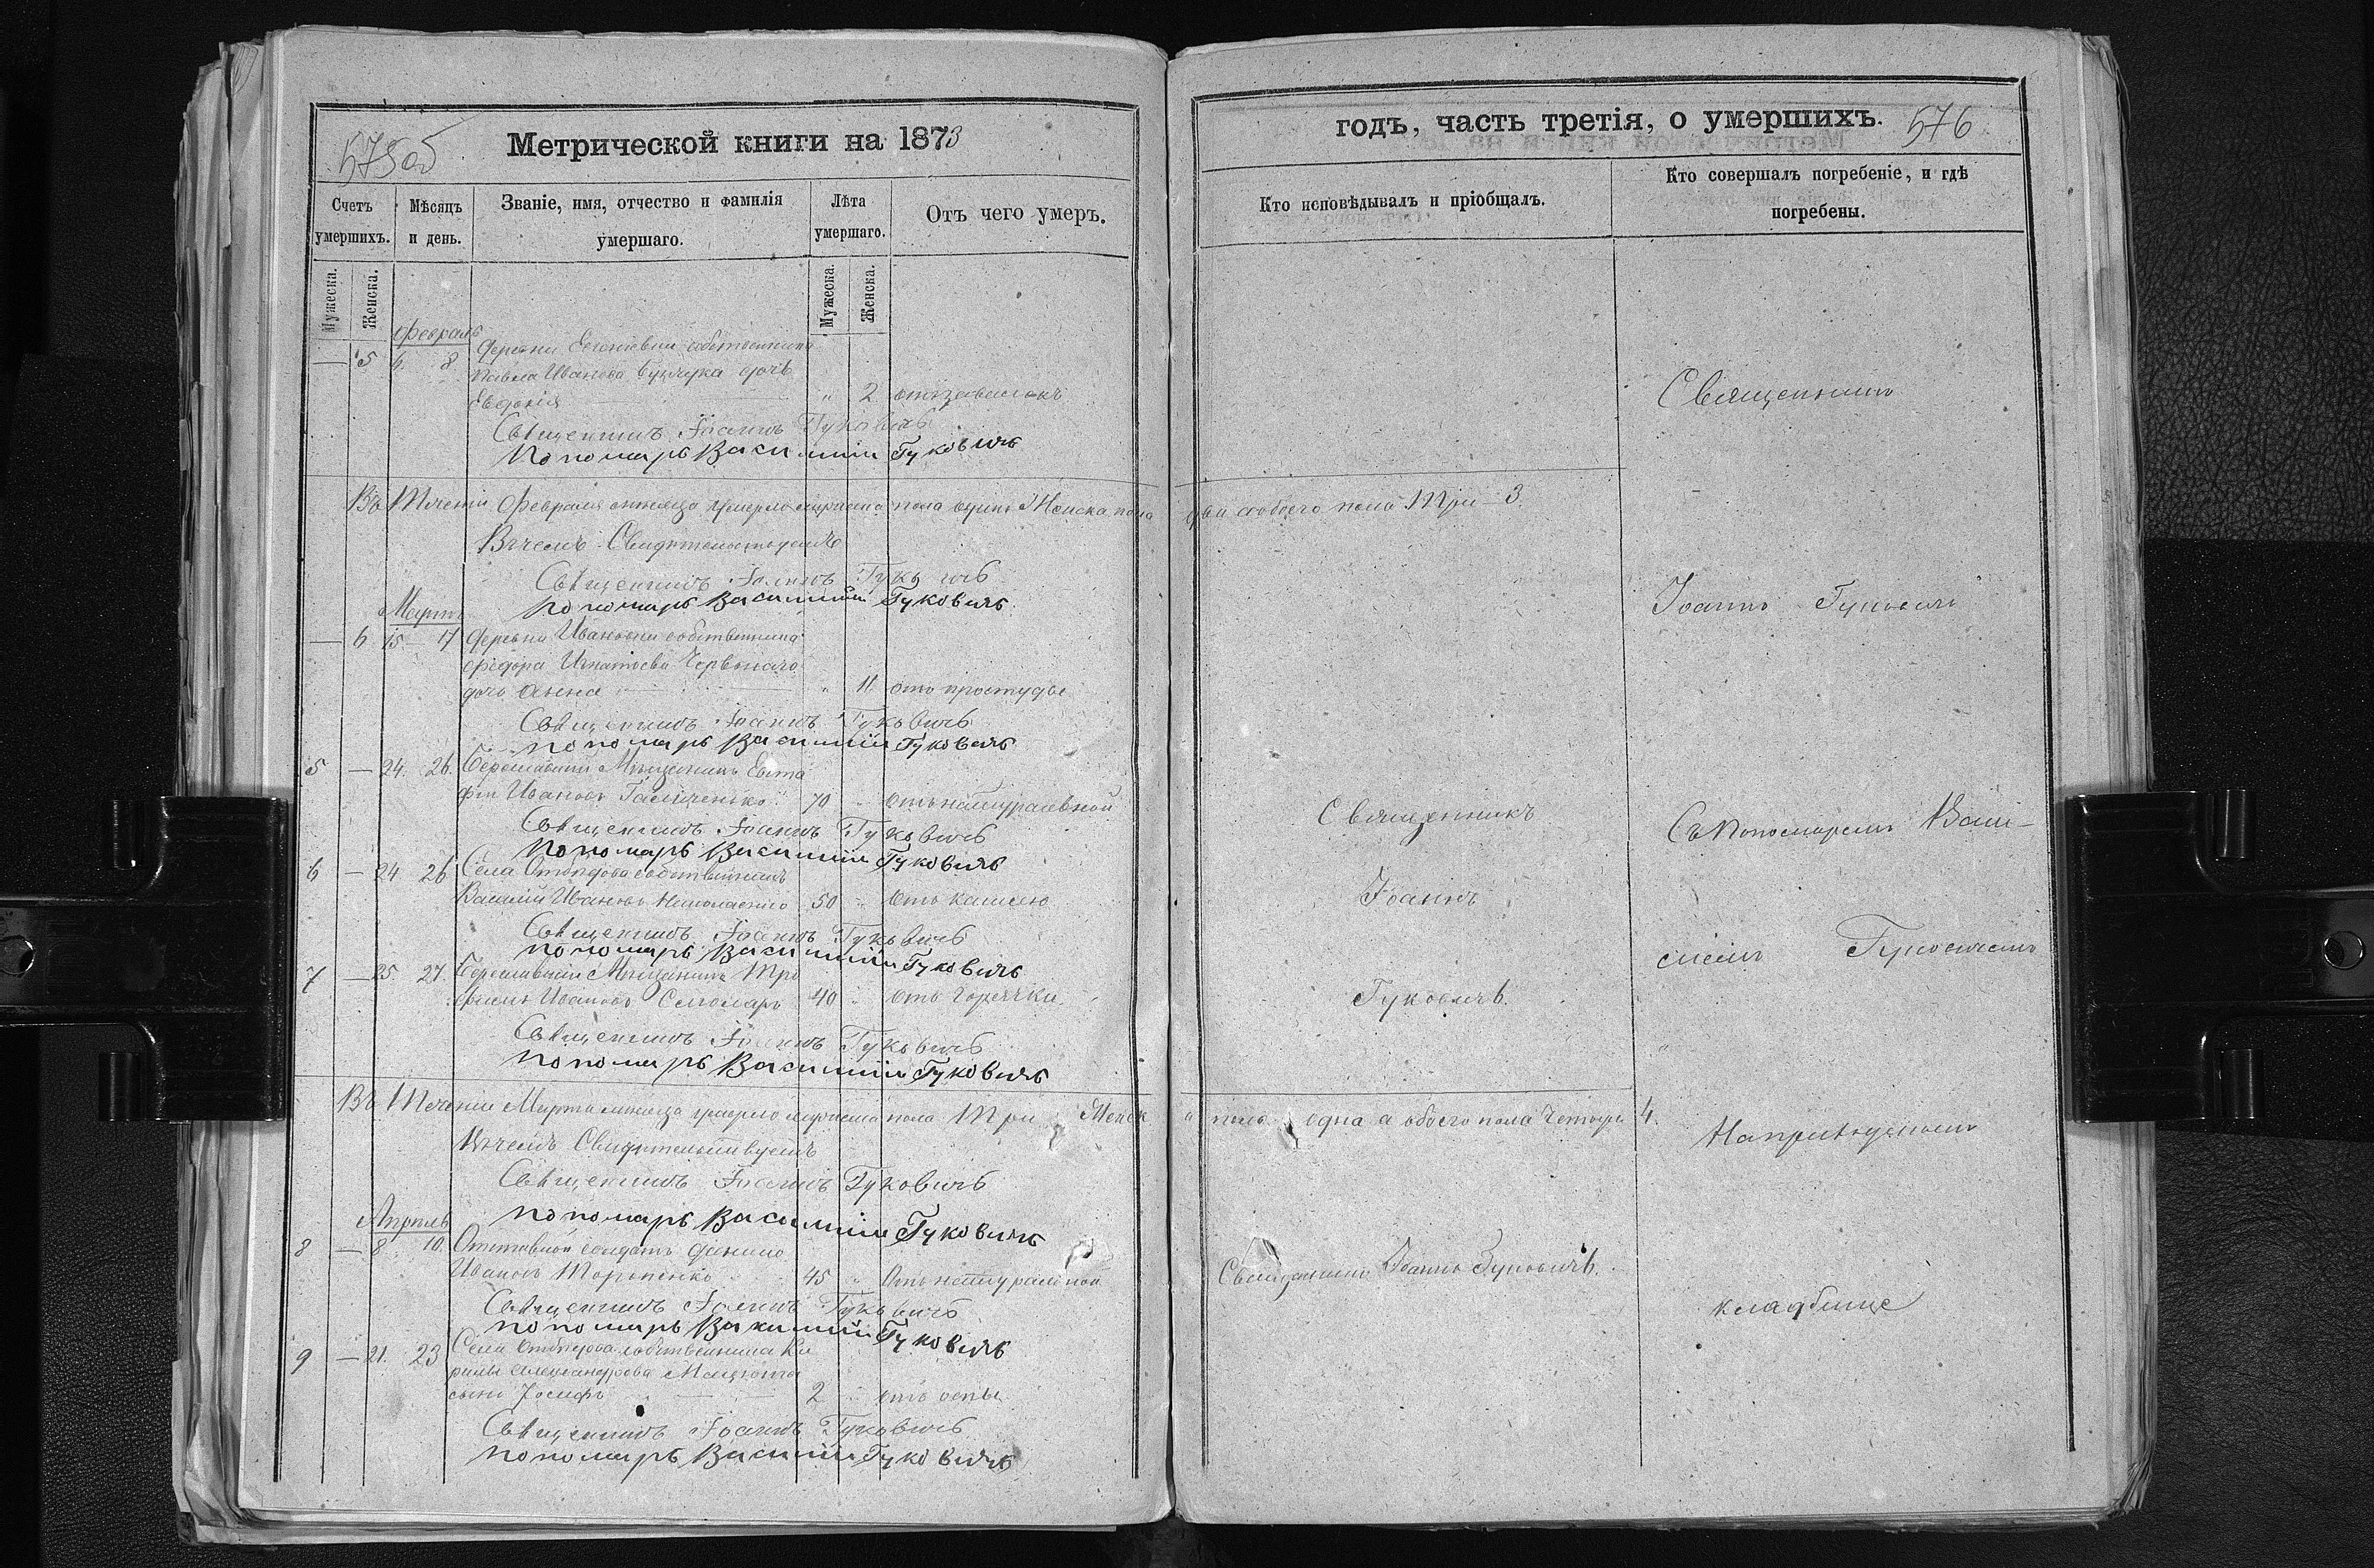 575об
Метрической книги на 1873
Счетъ умершихъ.
Мѣсяцъ и день.
Званіе, имя, отчество и фамилія умершаго.
Лѣта умершаго.
Отъ чего умеръ.
Мужеска.
Женска.
Мужеска.
Женска.
Февраль
— 5 6. 8 Деревни собственника
Павла Иванова дочь
Евдокія " 2
Священникъ Іоаннъ Гуковичъ
Пономарь Василій Гуковичъ
Въ Теченіи Февраля мѣсяца умерло мужеска пола одинъ Женска пола
Въ чемъ Свидѣтельствуемъ
Священникъ Іоаннъ Гуковичъ
Пономарь Василій Гуковичъ
Мартъ
— 6 15 17 Деревни Ивановки собственника
Федора Игнатьева Червонаго
дочь Анна " 11 отъ простуды
Священникъ Іоаннъ Гуковичъ
Пономарь Василій Гуковичъ
5 — 24. 26. Бериславскій Мѣщанинъ Евста
фій Ивановъ 70 " отъ натуральной
Священникъ Іоаннъ Гуковичъ
Пономарь Василій Гуковичъ
6 — 24 26 Села собственникъ
Василій Ивановъ 50 " отъ кашлю
Священникъ Іоаннъ Гуковичъ
Пономарь Василій Гуковичъ
7 — 25 27. Бериславскій Мѣщанинъ Тро
фимъ Ивановъ 40 " отъ горячки
Священникъ Іоаннъ Гуковичъ
Пономарь Василій Гуковичъ
Въ Теченіи Марта мѣсяца умерло мужеска пола Три Женск
Въ чемъ Свидѣтельствуемъ
Священникъ Іоаннъ Гуковичъ
Пономарь Василій Гуковичъ
Апрѣль
8 — 8 10. Отставной солдатъ Данило
Ивановъ 45 " Отъ натуральной
Священникъ Іоаннъ Гуковичъ
Пономарь Василій Гуковичъ
9 — 21. 23 Села собственника Ки
рилы Александрова
сынъ Іосифъ 2 " отъ оспы
Священникъ Іоаннъ Гуковичъ
Пономарь Василій Гуковичъ
годъ, часть третія, о умершихъ. 576
Кто исповѣдывалъ и пріобщалъ.
Кто совершалъ погребеніе, и гдѣ погребены.
Священникъ
два а обоего пола Три 3.
Іоаннъ Гуковичъ
Священникъ
Съ Пономаремъ Васи-
Іоаннъ
ліемъ Гуковичемъ
Гуковичъ.
а пола одна а обоего пола Четыре 4.
На приходскомъ
Священникъ Іоаннъ Гуковичъ.
кладбище